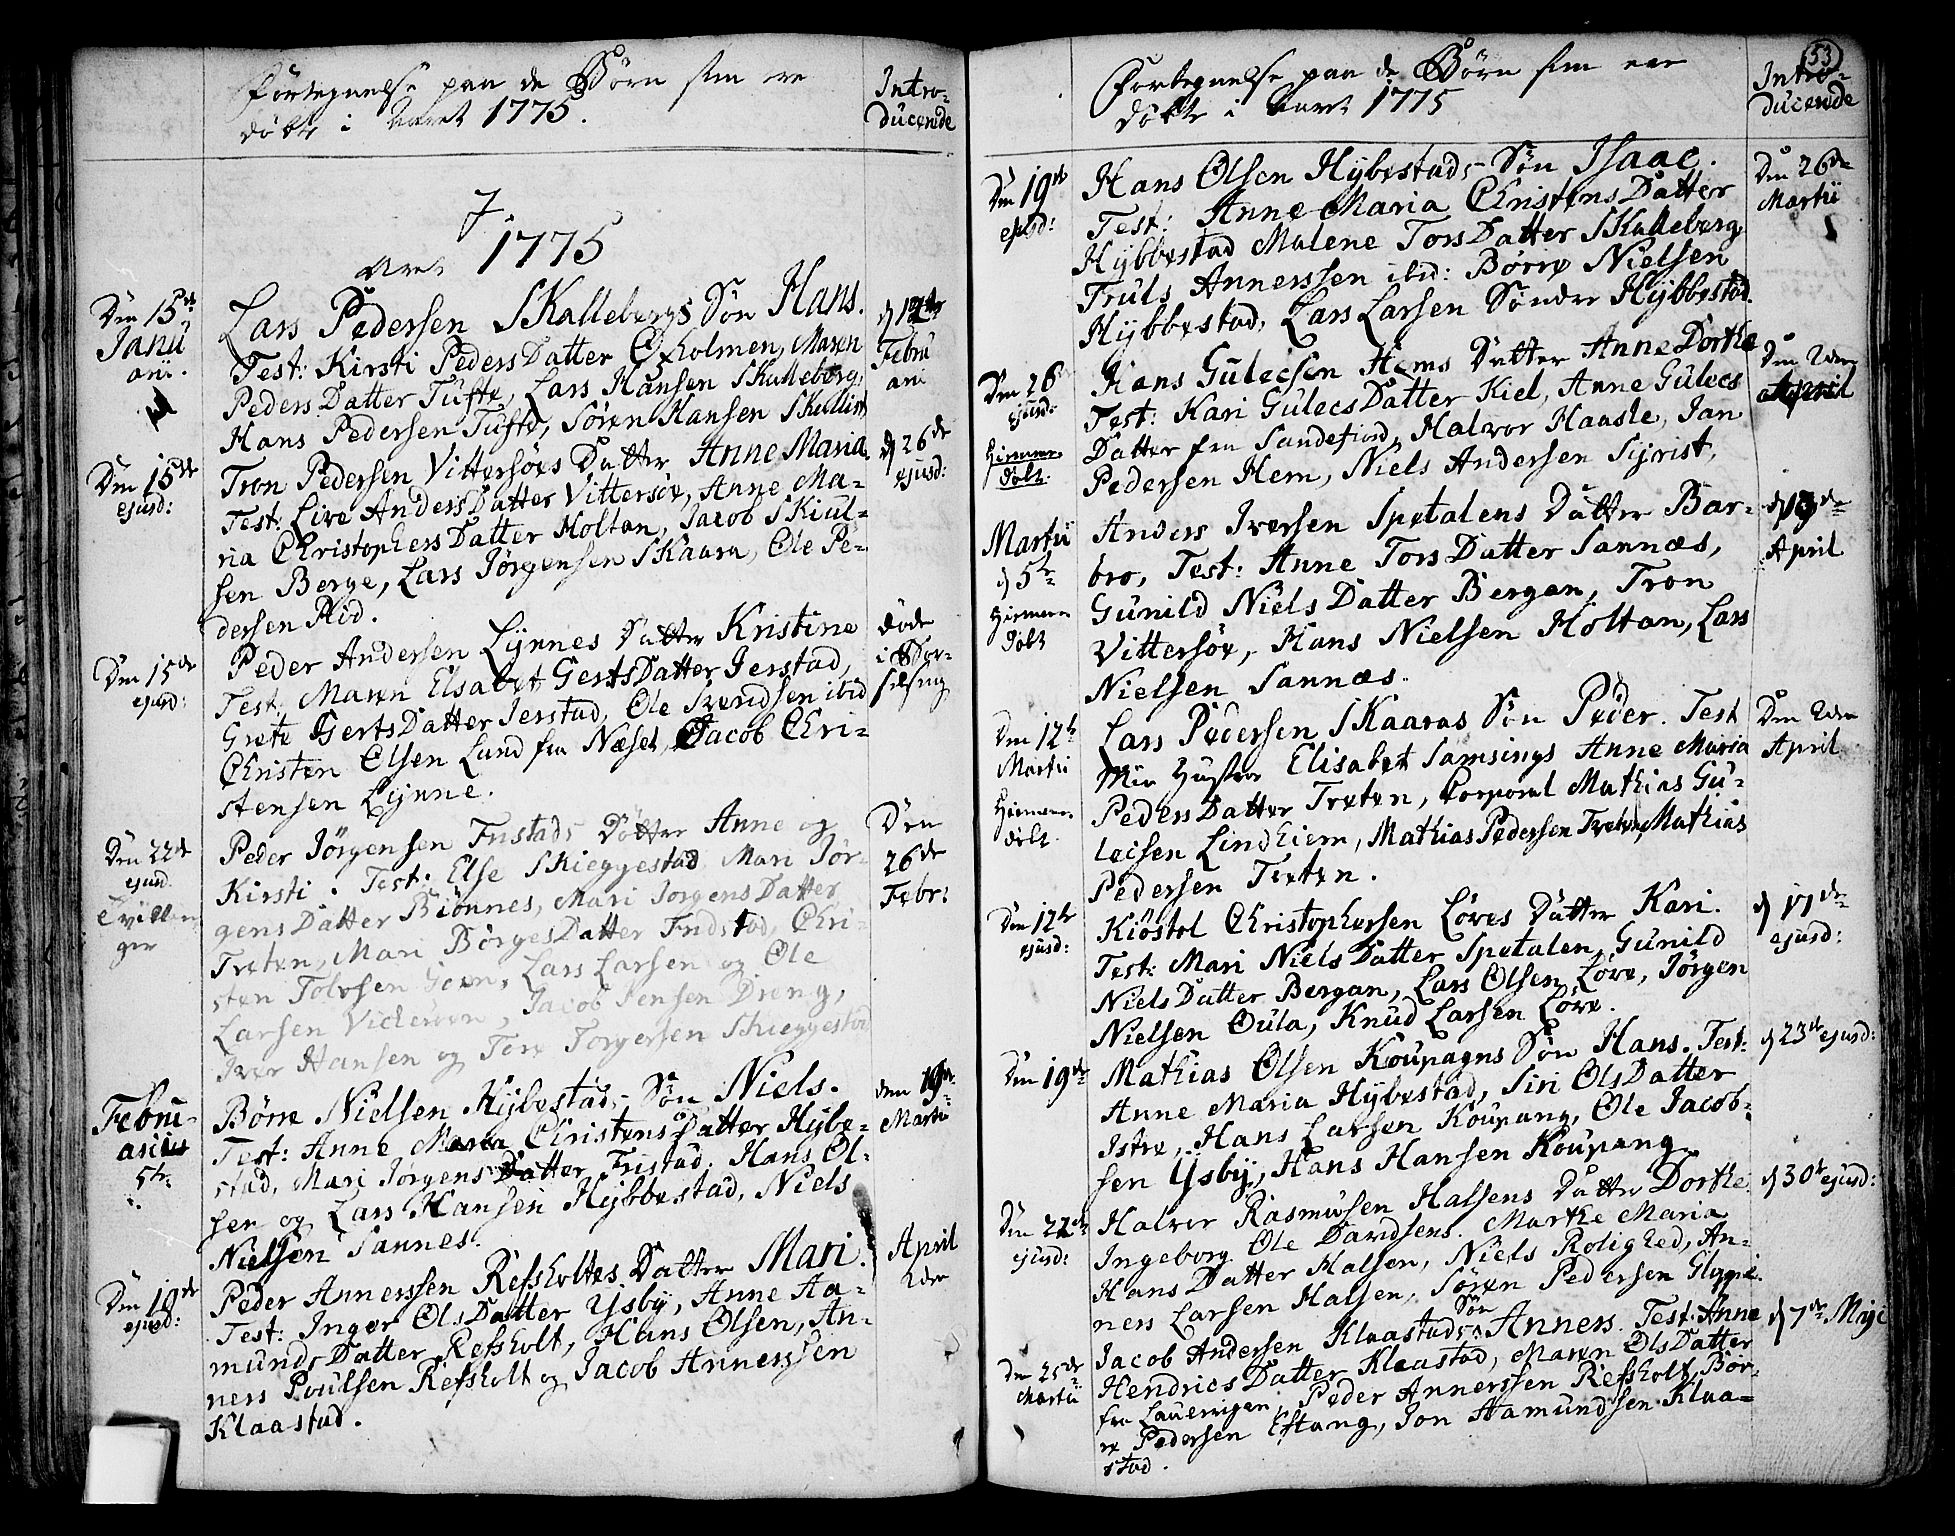 Fortegnelse paa de Børn som ere
døbte i Aaret 1775.
Intro-
ducerede
I
Aaret 1775
Den 15de
Janu
arii.
Lars Pedersen Skallebergs Søn Hans.
Test: Kirsti PedersDatter Øxholmen, Maren
PedersDatter Tufte, Lars Hansen Skalleberg,
Hans Pedersen Tufte, Søren Hansen
d 12te
Febru
arii
Den 15de
ejusd:
Tron Pedersen Vittersøes Datter Anne Maria
Test: Live AndersDatter Vittersøe, Anne Ma-
ria ChristophersDatter Holtan, Jacob Skiul-
sen Berge, Lars Jørgensen Skaara, Ole Pe-
dersen Riid.
d 26de
ejusd:
Den 15de
ejusd:
Peder Andersen Lynnes Datter Kristine
Test: Maren Elsabet GertsDatter Jerstad,
Grete GertsDatter Jerstad, Ole Svendsen ibid
Christen Olsen Lund fra Næset, Jacob Chri-
stensen Lynne.
døde
i Bar-
selseng
Den 22de
ejusd.
Tvillin
ger
Peder Jørgensen Fristads Døttre Anne og
Kirsti. Test: Else Skieggestad Mari Jør-
gensDatter Biønnes, Mari JørgensDatter
Treten, Mari BørgesDatter Fristad, Chri-
sten Tolvsen Goen, Lars Larsen og Ole
Larsen Vickeren, Jacob Jensen Dreng,
Iver Hansen og Tore Torgersen Skieggestad
Den
26de
Febr:
Febru-
arius
5te
Børre Nielsen Hybestads Søn Niels.
Test: Anne Maria ChristensDatter Hybe-
stad, Mari JørgensDatter Fristad, Hans Ol-
sen og Lars Hansen Hybbestad, Niels
Nielsen Sannes.
den 19de
Martii
Den 19de
ejusd:
Peder Annerssen Refsholtes Datter Mari.
Test: Inger OlsDatter Ysby, Anne Aa-
mundsDatter Refsholt, Hans Olsen, An-
ners Poulsen Refsholt og Jacob Annerssen
Klaastad.
April
2den
53
Fortegnelse paa de Børn som ere
døbte i Aaret 1775
Intro-
ducerede
Den 19de
ejusd:
Hans Olsen Hybestads Søn Isaac.
Test: Anne Maria ChristensDatter
Hybbestad Malene TorsDatter Skalleberg,
Truls Annerssen ibid: Børre Nielsen
Hybbestad, Lars Larsen Søndre Hybbestad.
Den 26de
Martii
Den 26
ejusd:
Hiemme-
døbt.
Hans Gulecsen Hems Datter Anne Dorthe
Test: Kari GulecsDatter Kiel, Anne Gulecs
Datter fra Sandefiord, Halvor Haasle, Jan
Pedersen Hem, Niels Andersen Sijrist,
Den 2den
April
Martii
d 5te
Hiemme
døbt
Anders Iversen Spetalens Datter Bar-
bro, Test: Anne TorsDatter Sannæs,
Gunild NielsDatter Bergan, Tron
Vittersøe, Hans Nielsen Holtan, Lars
Nielsen Sannæs.
d 19de
April
Den 12te
Martii
Hiemme
døbt.
Lars Pedersen Skaaras Søn Peder. Test
Min Hustro Elisabet Samsings Anne Maria
PedersDatter Treten, Corporal Mathias Gu-
lecsen Lindhiem, Mathias Pedersen Treten, Mathias
Pedersen Treten.
Den 2den
April
Den 12te
ejusd:
Kiøstol Christophersen Løves Datter Kari.
Test: Mari NielsDatter Spetalen, Gunild
NielsDatter Bergan, Lars Olsen Løve, Jørgen
Nielsen Oula, Knud Larsen Løve.
d 17de
ejusd:
Den 19de
Mathias Olsen Koupangs Søn Hans. Test:
Anne Maria Hybestad, Siri OlsDatter
Istre, Hans Larsen Koupang, Ole Jacob-
sen Ysby, Hans Hansen Koupang
d 23de ejusd:
Den 22de
ejusd:
Halvor Rasmusen Halsens Datter Dorthe
Ingeborg Ole Davidsens. Marthe Maria
HansDatter Halsen, Niels Rolighed, An-
ners Larsen Halsen, Søren Pedersen Gloppe.
d 30te ejusd:
Den 25de
Martii
Jacob Andersen Klaastads Søn Anners. Test: Anne
HendricsDatter Klaastad, Maren OlsDatter
fra Lauervigen, Peder Annerssen Refsholt, Bør-
re Pedersen Eftang, Jon Aamundsen Klaa-
stad.
d 7de Maji